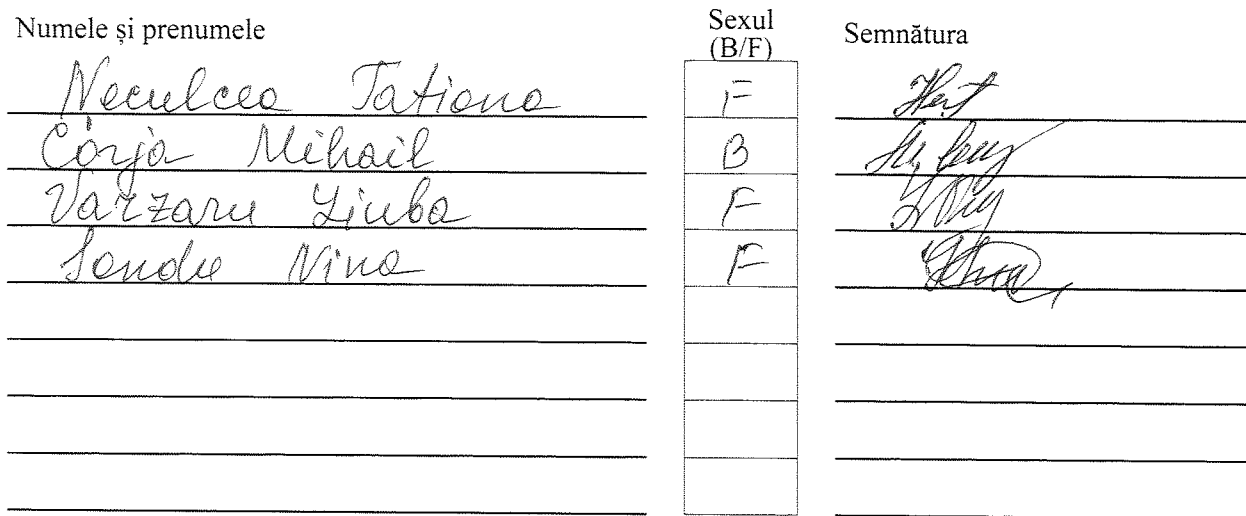 Numele și prenumele Sexul (B/F) Semnătura
Neculcea Tatiana F
Corja Mihail B
Varzaru Liuba F
Sandu Nina F